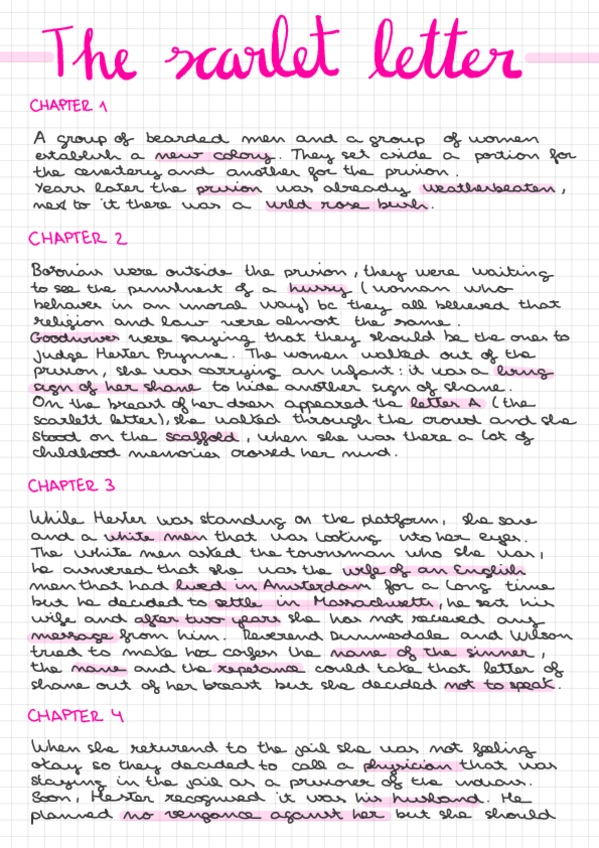 The scarlet letter
CHAPTER 1
A group of bearded men and a group of women
establish a new colony. They set aside a portion for
the cementery and another for the prision.
Years later the prision was already weatherbeaten,
next to it there was a wild rose bush.
CHAPTER 2
Botonians were outside the prision, they were waiting
to see the punishment of a hussy (woman who
behaves in an inmoral way) bc they all believed that
religion and law were almost the same.
Goodwives were saying that they should be the ones to
judge Hester Prynne. The women walked out of the
prision, she was carrying an infant: it was a living
sign of her shame to hide another sign of shame.
On the breast of her dress appeared the letter A (the
scarlett letter), she walked through the crowd and she
stood on the scaffold, when she was there a lot of
childhood memories crossed her mind.
CHAPTER 3
While Hester was standing on the platform, she saw
and a white men that was looking into her eyes.
The white men asked the townsman who she was,
he answered that she was the wife of an English
men that had lived in Amsterdam for a long time
but he decided to settle in Massachusetts, he sent his
wife and after two years she has not received any
message from him. Reverend Dimmesdale and Wilson
tried to make her confess the name of the sinner,
the name and the repetance could take that letter of
shame out of her breast but she decided not to speak.
CHAPTER 4
When she returend to the jail she was not feeling
okay so they decided to call a physician that was
staying in the jail as a prisoner of the indians.
Soon, Hester recognised it was his husband. He
planned no vengance against her but she should